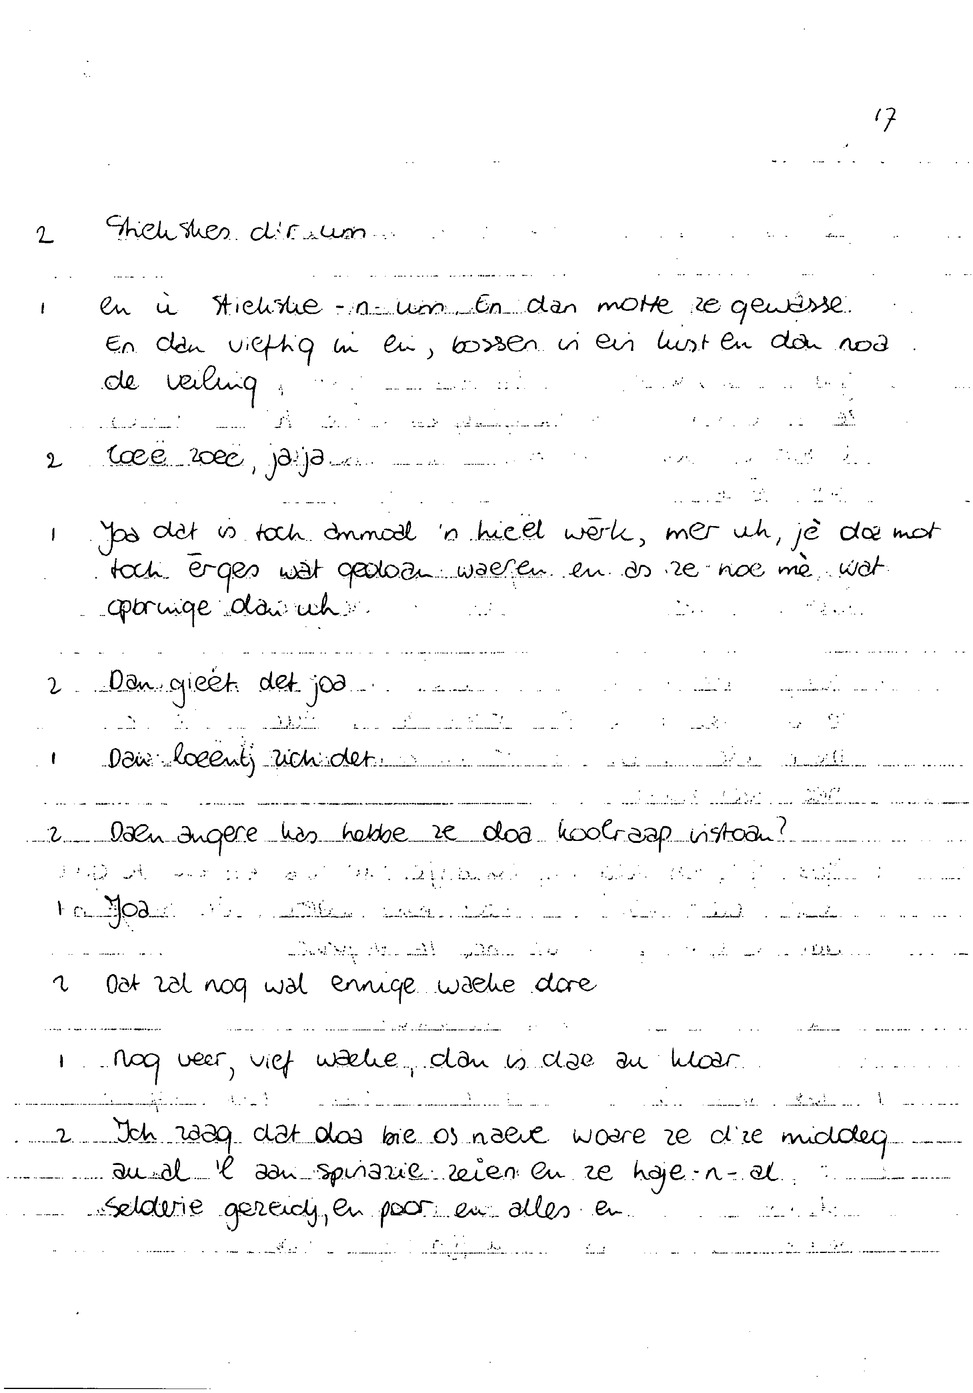 17
2 Stiekskes d'r um
1 en ù stiekske -n- um. En dan motte ze gewásse.
En dan vieftig in ein, bossen in ein kist en dan noa
de veiling
2 Zoeë zoeë, ja ja
1 Joa dat is toch ammoal 'n hieël wèrk, mer uh, jè doe mot
toch èrges wat gedoan waeren en as ze noe mè wat
opbringe dan uh
2 Dan gieët det joa
1 Dan loeëntj zich det
2 Daen angere kas hebbe ze doa koolraap instoan?
1 Joa
2 Dat zal nog wal ennige waeke dore
1 nog veer, vief waeke, dan is dae au kloar
2 Ich zaag dat doa bie os naeve woare ze d'ze middeg
au al 't aan spinazie zeien en ze haje-n-al
selderie gezeidj, en poor en alles en